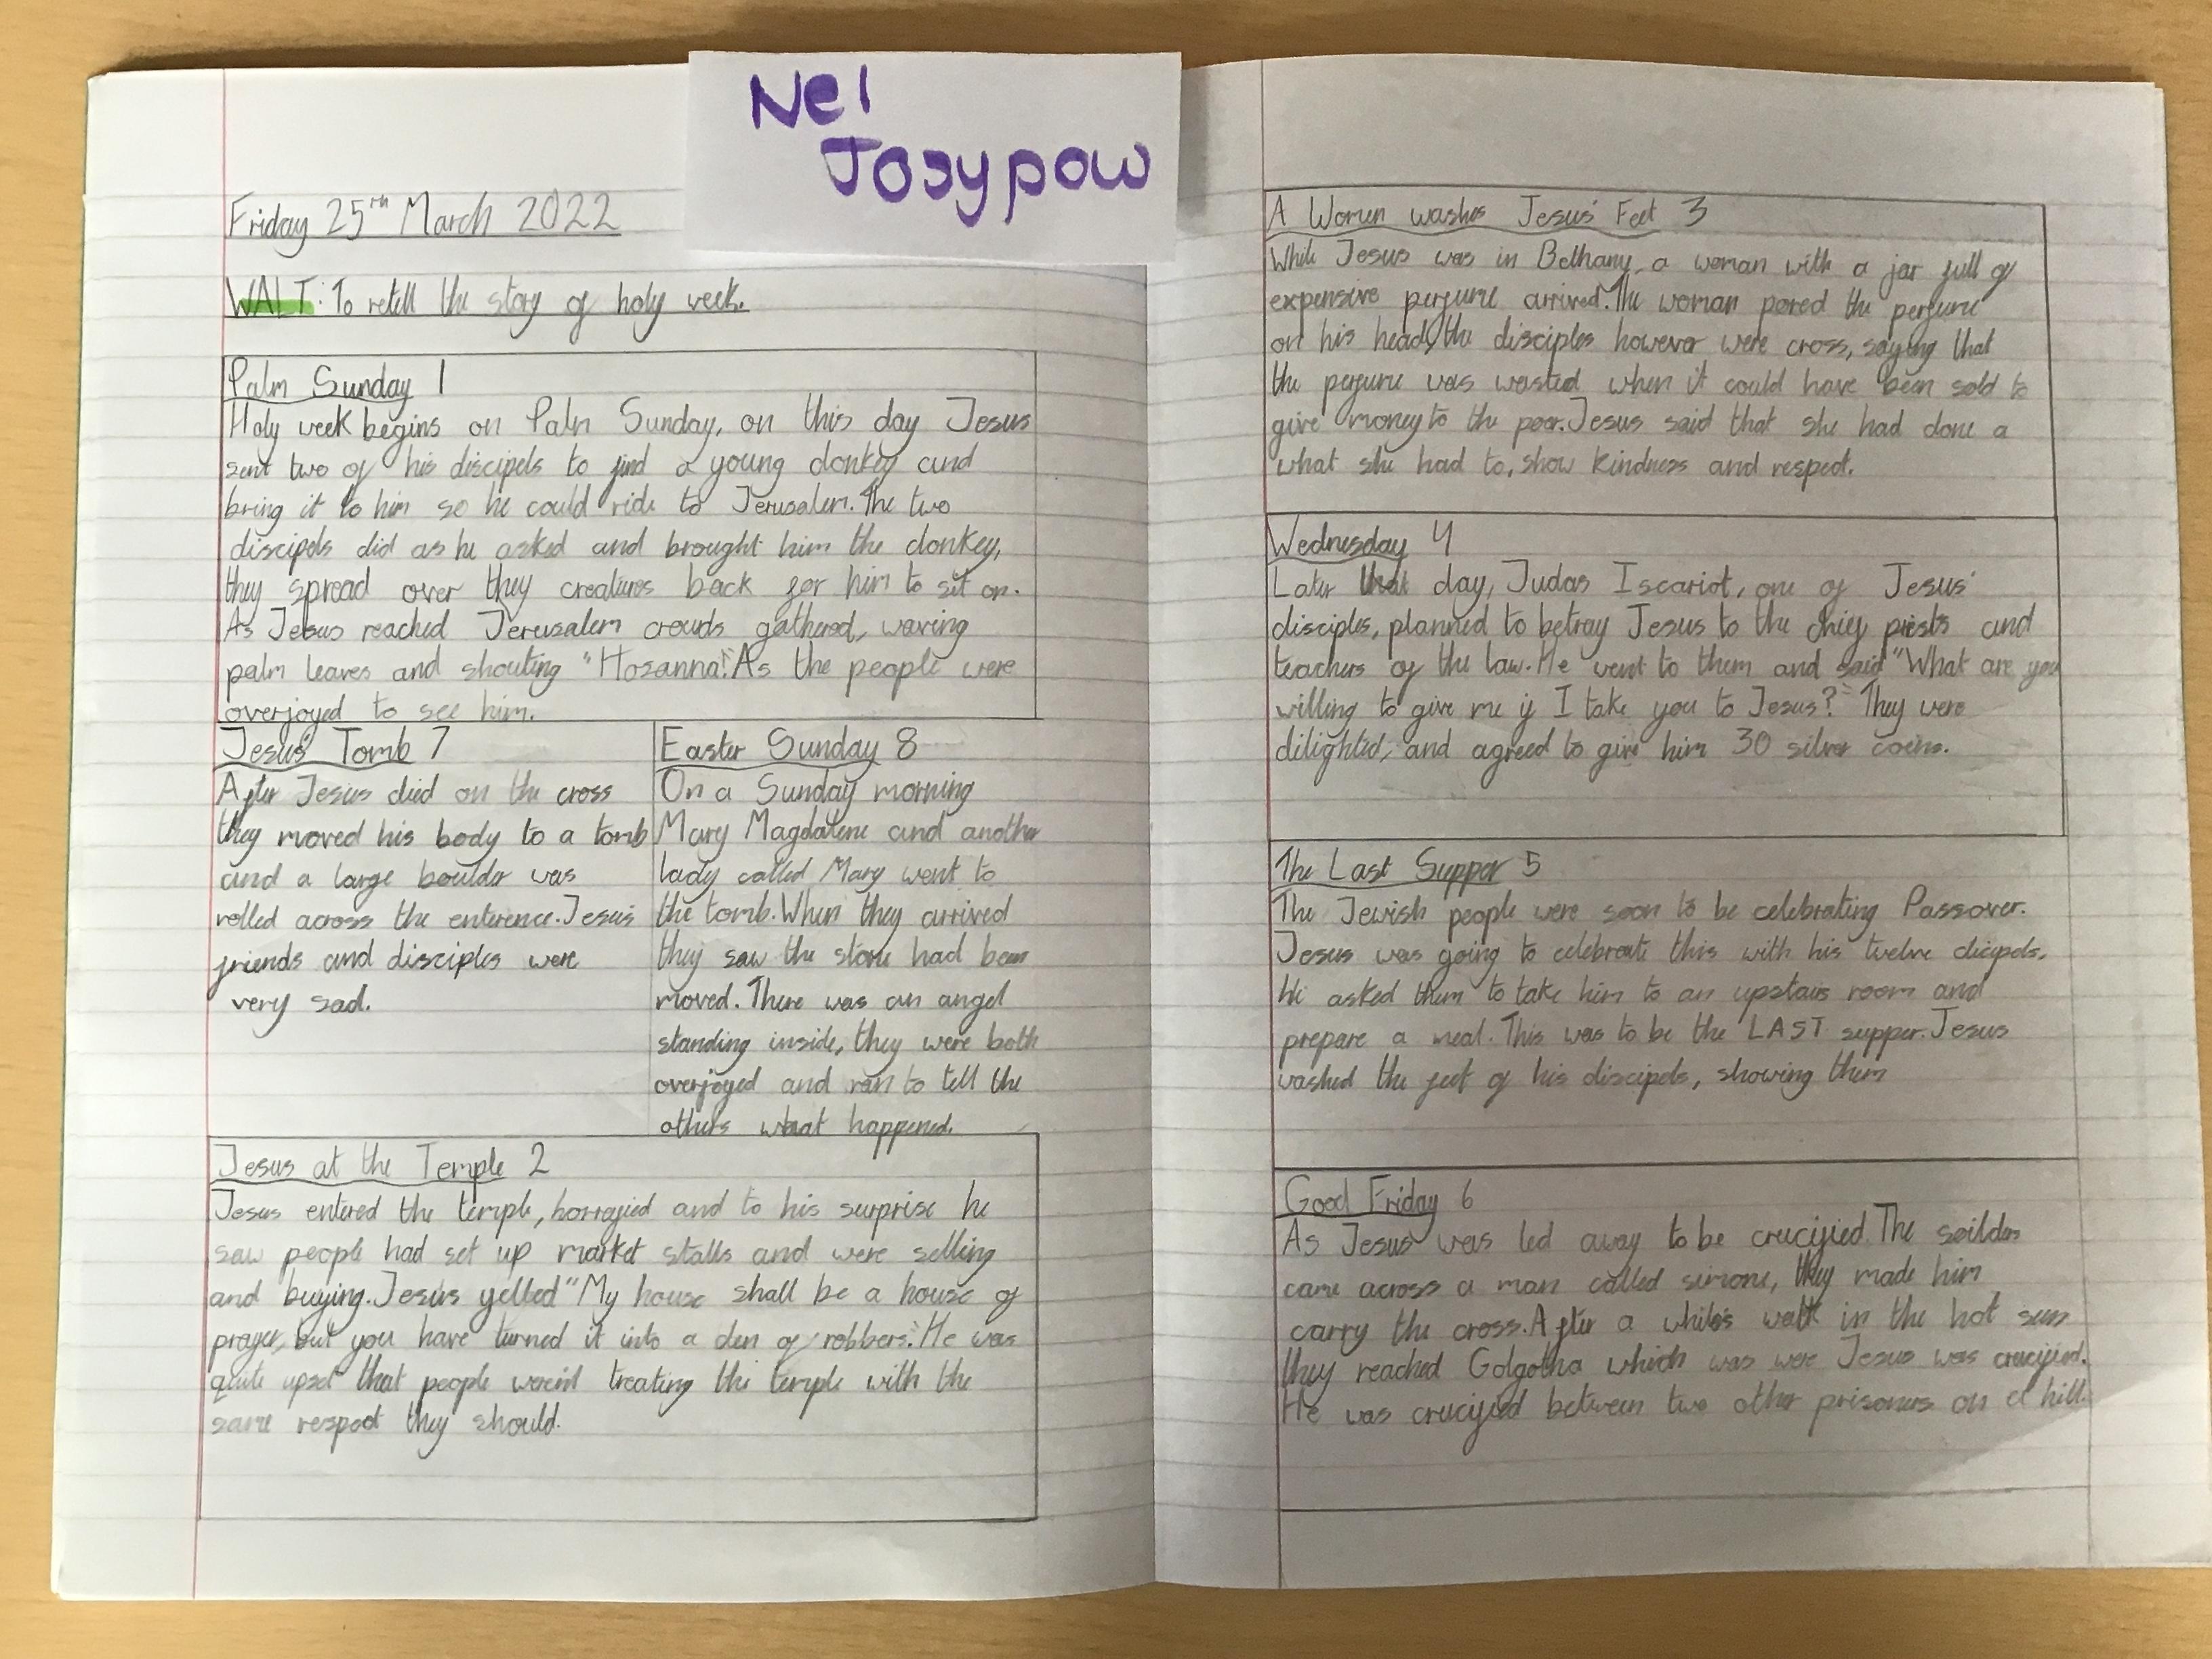 Nel
Josypow
Friday 25th March 2022
WALT: To retell the story of holy week.
Palm Sunday 1
Holy week begins on Palm Sunday, on this day Jesus
sent two of his discipels to find a young donkey and
bring it to him so he could ride to Jerusalem. The two
discipels did as he asked and brought him the donkey,
they spread over they creatures back for him to sit on.
As Jesus reached Jerusalem crowds gathered, waving
palm leaves and shouting "Hosanna!" As the people were
overjoyed to see him.
Jesus' Tomb 7
After Jesus died on the cross
they moved his body to a tomb
and a large boulder was
rolled across the enterence. Jesus'
friends and disciples were
very sad.
Easter Sunday 8
On a Sunday morning
Mary Magdalene and another
lady called Mary went to
the tomb. When they arrived
they saw the stone had been
moved. There was an angel
standing inside, they were both
overjoyed and ran to tell the
others what happened.
Jesus at the Temple 2
Jesus entered the temple, horrofied and to his surprise he
saw people had set up market stalls and were selling
and buying. Jesus yelled "My house shall be a house of
prayer, but you have turned it into a den of robbers." He was
quite upset that people weren't treating the temple with the
same respect they should.
A Women washes Jesus' Feet 3
While Jesus was in Bethany, a woman with a jar full of
expensive perfume arrived. The woman pored the perfume
on his head, the disciples however were cross, saying that
the perfume was wasted when it could have been sold to
give money to the poor. Jesus said that she had done a
what she had to, show kindness and respect.
Wednesday 4
Later that day, Judas Iscariot, one of Jesus'
disciples, planned to betray Jesus to the chief priests and
teachers of the law. He went to them and said "What are you
willing to give me if I take you to Jesus?" They were
dilighted, and agreed to give him 30 silver coins.
The Last Supper 5
The Jewish people were soon to be celebrating Passover.
Jesus was going to celebrate this with his twelve dicipels.
He asked them to take him to an upstairs room and
prepare a meal. This was to be the LAST supper. Jesus
washed the feet of his discipels, showing them
Good Friday 6
As Jesus was led away to be crucified. The soilders
came across a man called simone, they made him
carry the cross. After a while's walk in the hot sun
they reached Golgotha which was were Jesus was crucified.
He was crucified between two other prisoners on a hill.